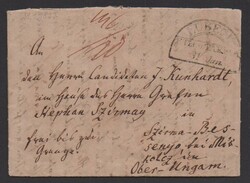 An
den Herrn Candidaten J. Kunhardt,
im Hause des Herrn Grafen
Stephan Szirmay
in
frei bis zur
Grenze.
Szirma-Bes-
senyö bei Mis-
kolcz in
Ober-Ungarn.